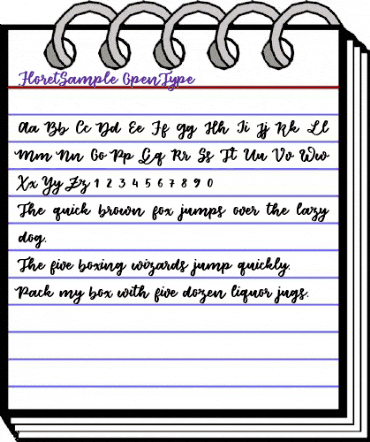 FloretSample OpenType
Aa Bb Cc Dd Ee Ff Gg Hh Ii Jj Kk Ll
Mm Nn Oo Pp Qq Rr Ss Tt Uu Vv Ww
Xx Yy Zz 1 2 3 4 5 6 7 8 9 0
The quick brown fox jumps over the lazy
dog.
The five boxing wizards jump quickly.
Pack my box with five dozen liquor jugs.